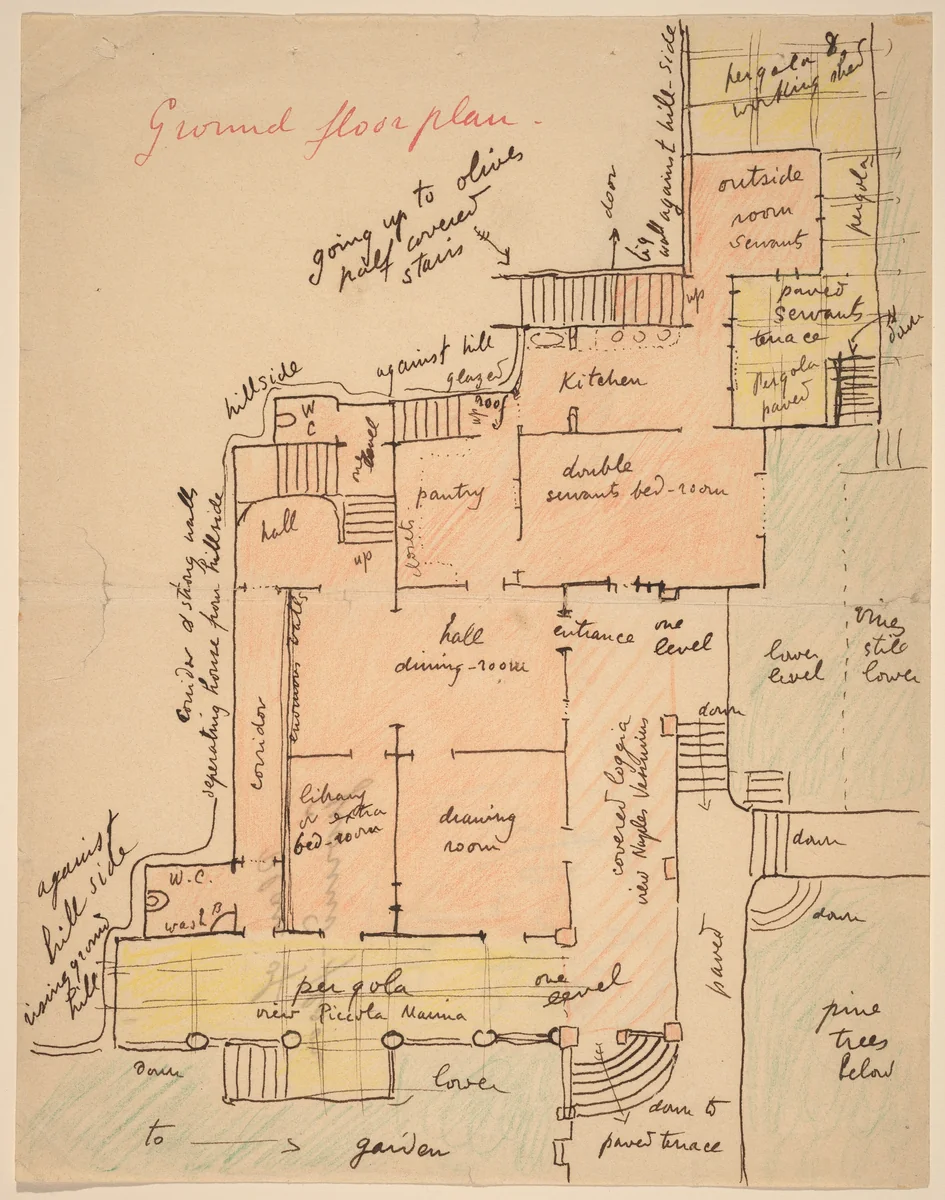 Ground floor plan.
pergola &
working shed
big
wall against hill-side
door
going up to olives
half covered
stairs
outside
room
servants
pergola
up
paved
servants
terrace
down
Pergola
paved
against hill
glazed
roof
up
hillside
W
C
one
level
Kitchen
pantry
closets
double
servants bed-room
hall
up
corridor & strong walls
separating house from hillside
corridor
enormous vases
hall
dining-room
entrance
one
level
lower
level
vines
still
lower
down
covered loggia
view Naples Vesuvius
library
or extra
bed-room
drawing
room
down
down
against
hill side
rising ground
hill
W.C.
wash B
pergola
view Piccola Marina
one
level
paved
pine
trees
below
down
lower
down to
paved terrace
to → garden